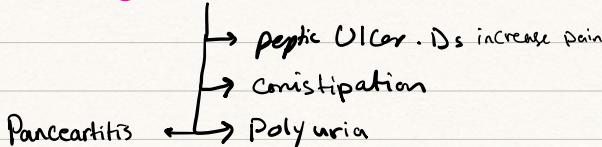 peptic Ulcer . Ds increase pain
conistipation
Panceartitis Polyuria